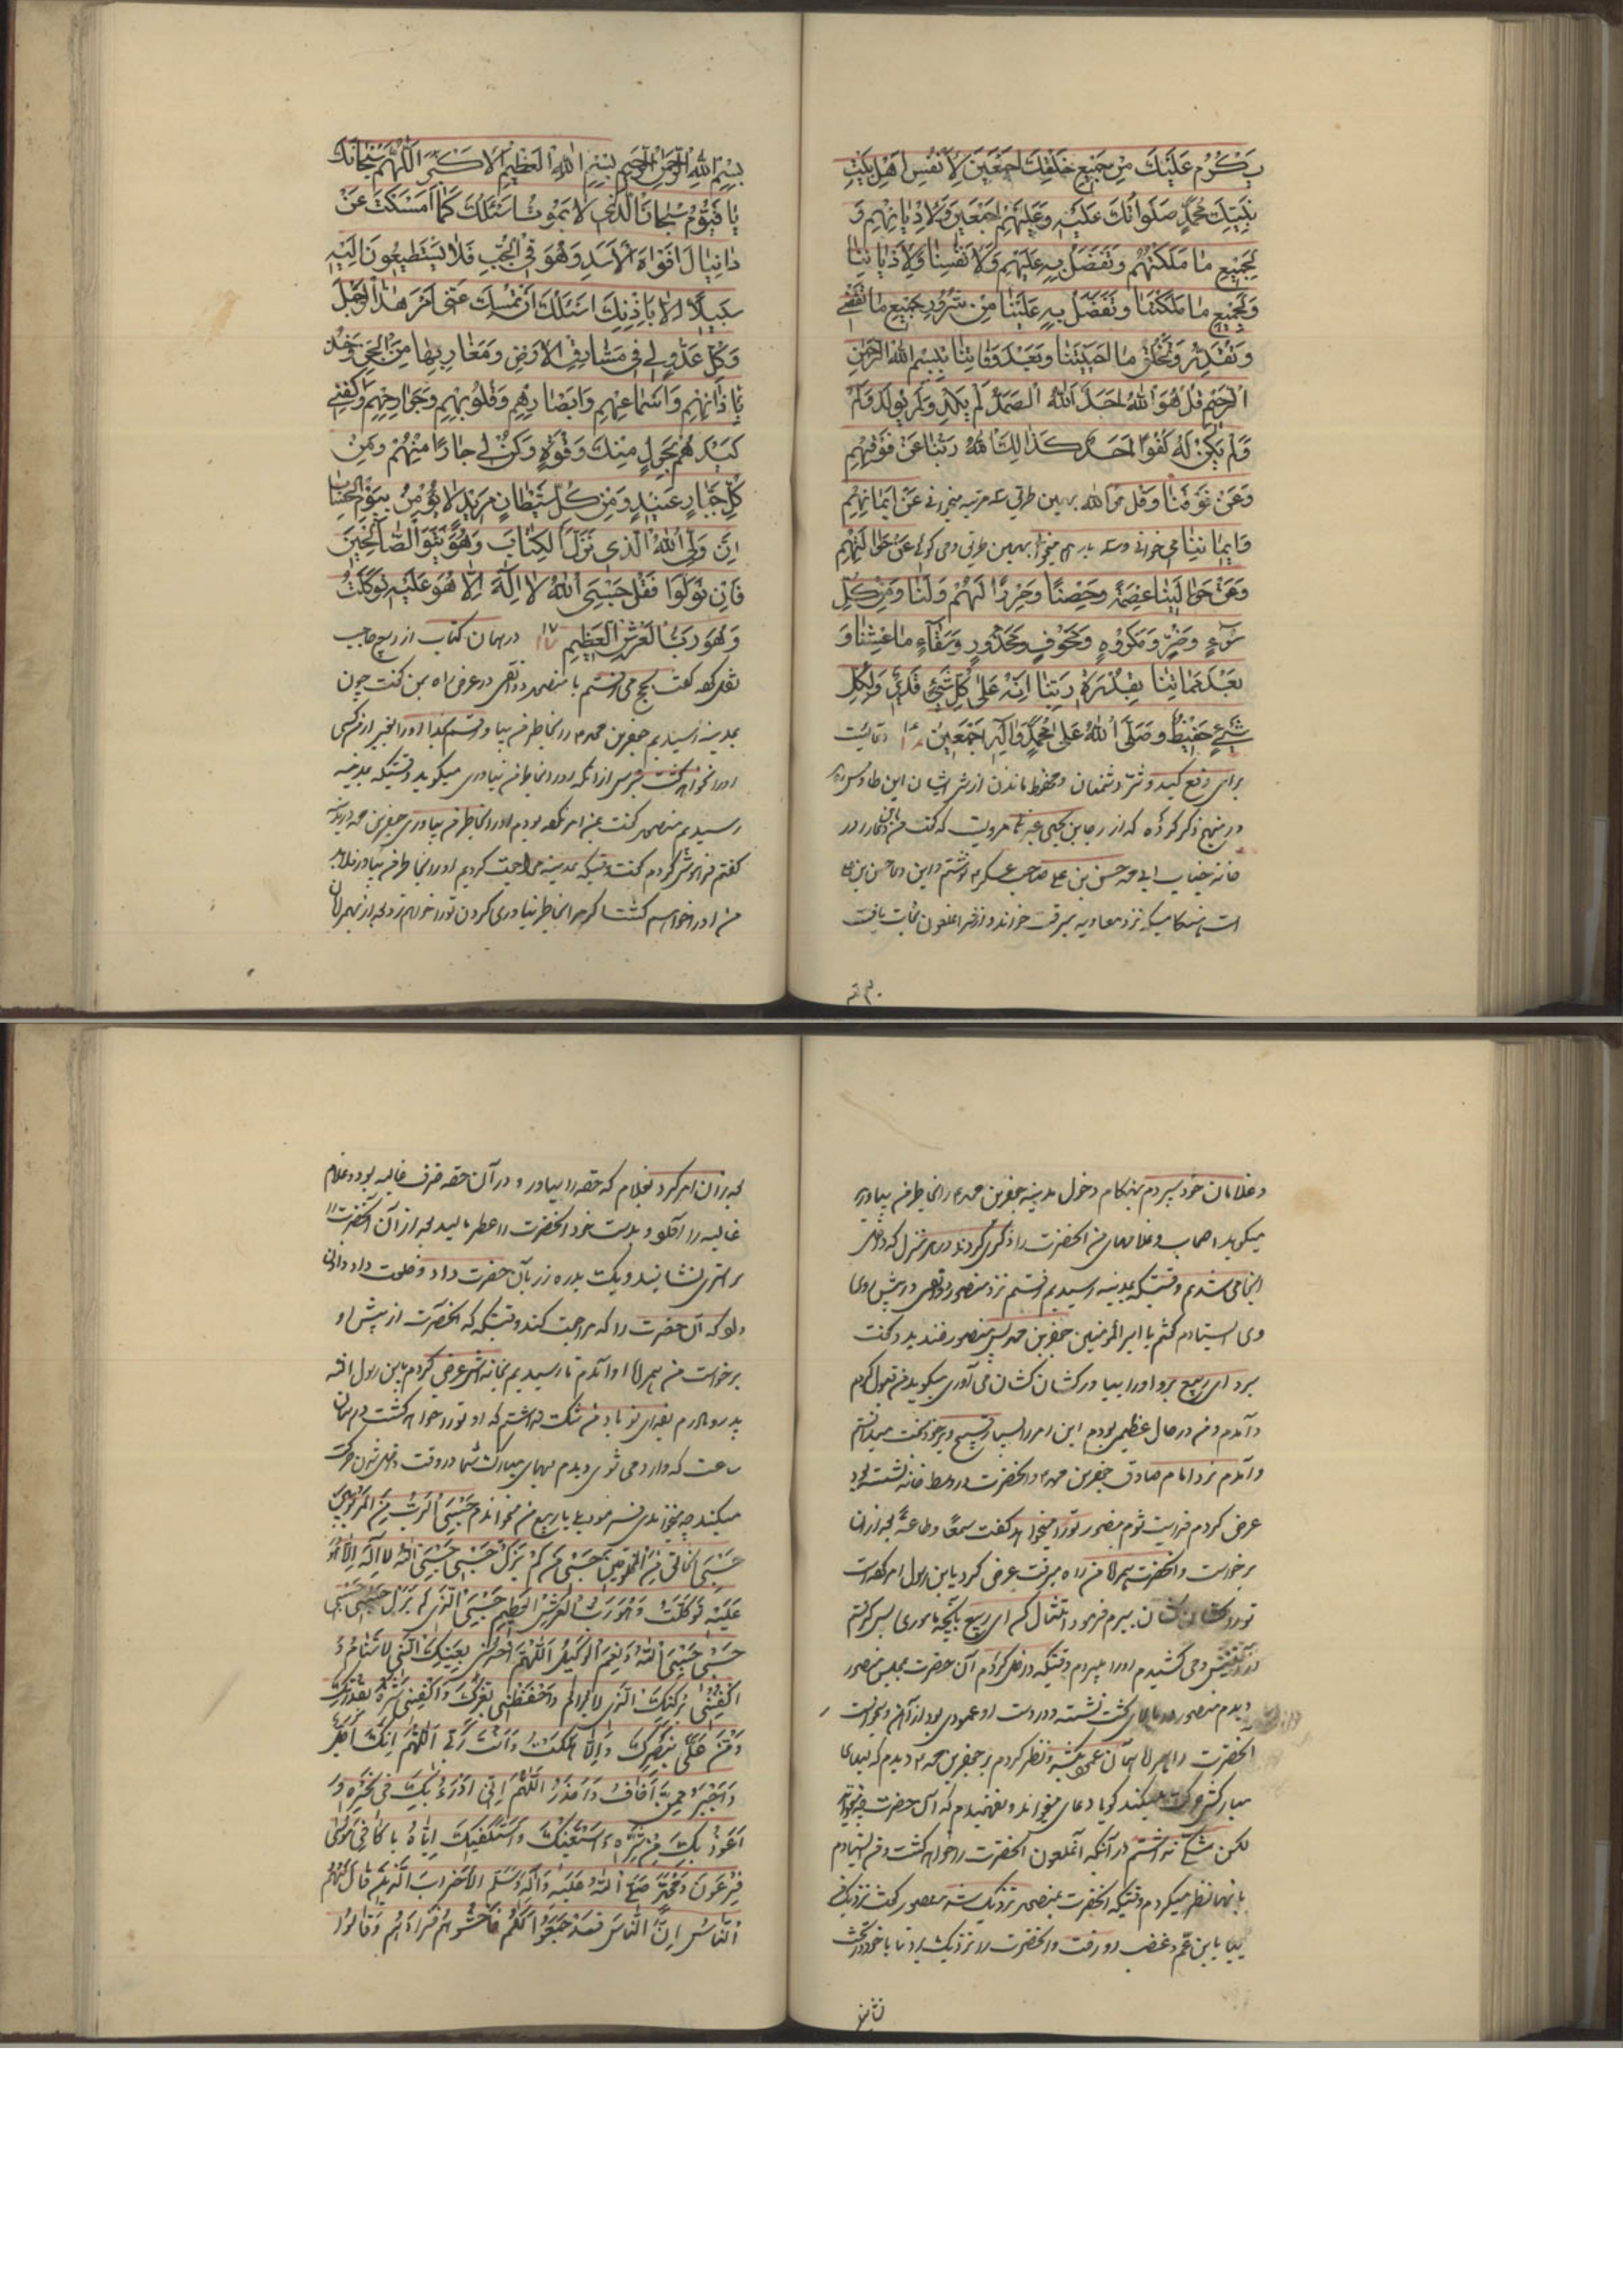 بِكُرُمِ عَلَيْكَ مِنْ جَمِيعِ خَلْقِكَ اَجْمَعِينَ لِاَنْفُسِ اَهْلِ بَيْتِ
نَبِيِّكَ مُحَمَّدٍ صَلَوٰاتُكَ عَلَيْهِ وَعَلَيْهِمْ اَجْمَعِينَ وَلِاَدْيٰانِهِمْ وَ
لِجَمِيعِ مٰا مَلَّكْتَهُمْ وَتَفَضَّلُ بِهِ عَلَيْهِمْ وَلِاَنْفُسِنٰا وَلِاَدْيٰانِنٰا
وَلِجَمِيعِ مٰا مَلَّكْتَنٰا وَتَفَضَّلُ بِهِ عَلَيْنٰا مِنْ شُرُورِ جَمِيعِ مٰا تَقْضِي
وَتُقَدِّرُ وَتَخْلُقُ مٰا اَحْيَيْتَنٰا وَبَعْدَ وَفٰاتِنٰا بِبِسْمِ اللّٰهِ الرَّحْمٰنِ
الرَّحِيمِ قُلْ هُوَ اللّٰهُ اَحَدٌ اَللّٰهُ الصَّمَدُ لَمْ يَلِدْ وَلَمْ يُولَدْ وَلَمْ
وَلَمْ يَكُنْ لَهُ كُفُوًا اَحَدٌ كَذٰلِكَ اللّٰهُ رَبُّنٰا عَنْ فَوْقِهِمْ
وَعَنْ فَوْقِنٰا وَقُلْ هُوَ اللّٰه بهمین طریق سه مرتبه میخوانی عَنْ اَيْمٰانِهِمْ
وَاَيْمٰانِنٰا می خوانی و سه بار هم بهمین طریق و می گوئی عَنْ حَوٰالَيْهِمْ
وَعَنْ حَوٰالَيْنٰا عِصْمَةً وَحِصْنًا وَحِرْزًا لَهُمْ وَلَنٰا وَمِنْ كُلِّ
سُوءٍ وَضُرٍّ وَمَكْرُوهٍ وَمَخُوفٍ وَمَحْذُورٍ وَبَقٰاءٍ مٰا عِشْنٰا وَ
بَعْدَ مَمٰاتِنٰا بِقُدْرَةِ رَبِّنٰا اِنَّهُ عَلٰى كُلِّ شَيْئٍ قَدِيرٌ وَلِكُلِّ
شَيْءٍ حَفِيظٌ وَصَلَّى اللّٰهُ عَلٰى مُحَمَّدٍ وَاٰلِهِ اَجْمَعِينَ دعائیست
برای دفع کید و شر دشمنان و محفوظ ماندن از شر ایشان ابن طاوس ره
در منهج ذکر کرده که از رجا بن یحیی مرویست که گفت من این دعا را در
خانه جناب ابی محمد حسن بن علی صاحب عسکر نوشتم و این دعای حسن بن علی
است هنگامیکه نزد معاویه میرفت خواند و از شر انملعون نجات یافت
بِسْمِ اللّٰهِ الرَّحْمٰنِ الرَّحِيمِ بِسْمِ اللّٰهِ الْعَظِيمِ الْاَكْبَرِ اَللّٰهُمَّ سُبْحٰانَكَ
يٰا قَيُّومُ سُبْحٰانَ الَّذِي لٰا يَمُوتُ اَسْئَلُكَ كَمٰا اَمْسَكْتَ عَنْ
دٰانِيٰالَ اَفْوٰاهَ الْاَسَدِ وَهُوَ فِي الْجُبِّ فَلٰا يَسْتَطِيعُونَ اِلَيْهِ
سَبِيلًا اِلّٰا بِاِذْنِكَ اَسْئَلُكَ اَنْ تُمْسِكَ عَنِّي اَمْرَ هٰذَا الرَّجُلِ
وَكُلِّ عَدُوٍّ لِي فِي مَشٰارِقِ الْاَرْضِ وَمَغٰارِبِهٰا مِنَ الْجِنِّ وَخُذْ
بِاٰذٰانِهِمْ وَاَسْمٰاعِهِمْ وَاَبْصٰارِهِمْ وَقُلُوبِهِمْ وَجَوٰارِحِهِمْ وَاكْفِنِي
كَيْدَهُمْ بِحَوْلٍ مِنْكَ وَقُوَّةٍ وَكُنْ لِي جٰارًا مِنْهُمْ وَمِنْ
كُلِّ جَبّٰارٍ عَنِيدٍ وَمِنْ كُلِّ شَيْطٰانٍ مَرِيدٍ لٰا يُؤْمِنُ بِيَوْمِ الْحِسٰابِ
اِنَّ وَلِيِّيَ اللّٰهُ الَّذِي نَزَّلَ الْكِتٰابَ وَهُوَ يَتَوَلَّى الصّٰالِحِينَ
فَاِنْ تَوَلَّوْا فَقُلْ حَسْبِيَ اللّٰهُ لٰا اِلٰهَ اِلّٰا هُوَ عَلَيْهِ تَوَكَّلْتُ
وَهُوَ رَبُّ الْعَرْشِ الْعَظِيمِ ۱۷ در همان کتاب از ربیع حاجب
نقل کرده گفت بحج می رفتم با منصور دوانقی در عرض راه بمن گفت چون
بمدینه رسیدیم جعفر بن محمد را بخاطر من بیاور
رسیدیم منصور گفت
گفتم فراموش کردم گفت وقتیکه بمدینه مراجعت کردیم او را بخاطر من بیاور
و غلامان خود سپردم بهنگام دخول مدینه جعفر بن محمد را بخاطر من بیاورید
میکوید اصحاب و غلامهای من انحضرت را ذکر می کردند در هر منزل که داخل
انجا می شدیم وقتیکه بمدینه رسیدیم رفتم نزد منصور دوانقی در پیش روی
وی ایستادم گفتم یا امیر المومنین جعفر بن محمد پس منصور خندید و گفت
برو ای ربیع برو او را بیاور کشان کشان می آوری میکوید من قبول کردم
و آمدم و من در حال عظیمی بودم این امر را بسیار قبیح و بر خود سخت میدانستم
و آمدم نزد امام صادق جعفر بن محمد و انحضرت در وسط خانه نشسته بود
عرض کردم فدایت شوم منصور تو را میخواهد گفت سمعًا و طاعةً بعد از ان
برخواست و انحضرت همراه من راه میرفت عرض کرد یابن رسول امر کرده است
تو را کشان کشان ببرم فرمود امتثال کن ای ربیع بآنچه ماموری پس گرفتم
می کشیدم او را میبردم وقتیکه داخل کردم آن حضرت بمجلس منصور
دیدم منصور در بالای تخت نشسته و در دست او عمودی بود از آهن و میخواست
انحضرت را نظر کردم بر جعفر بن محمد دیدم که لبهای
مبارکش حرکت میکند گویا دعای میخواند و نفهمیدم که آن حضرت چه میخواند
لکن شکی نداشتم در آنکه آنملعون انحضرت را خواهد کشت و من ایستادم
بانها نظر میکردم وقتیکه انحضرت بمنصور نزدیک شد منصور گفت نزدیک من
بیا یابن عم و غضب او رفت و انحضرت را نزدیک برد تا با خود در تخت
بعد از آن امر کرد بغلام که حقه را بیاور و در آن حقه ظرف غالیه بود و غلام
غالیه را آورد و بدست خود انحضرت را عطر مالید بعد از آن انحضرت را
بر استری نشانید و یک بدره زر بآن حضرت داد و خلعت داد
که آن حضرت را که مراجعت کند وقتیکه که انحضرت از پیش او
برخواست من همراه او آمدم تا رسیدیم بخانه اش عرض کردم یابن رسول الله
پدر و مادرم بفدای تو باد من شک نداشتم که او تو را خواهد کشت در همان
ساعت که وارد می شوی و دیدم لبهای مبارک شما در وقت داخل شدن حرکت
میکند چه میخواندی فرمود بلی یا ربیع من میخواندم حَسْبِيَ الرَّبُّ مِنَ الْمَرْبُوبِينَ
حَسْبِيَ الْخٰالِقُ مِنَ الْمَخْلُوقِينَ حَسْبِي مَنْ لَمْ يَزَلْ حَسْبِي حَسْبِيَ اللّٰهُ لٰا اِلٰهَ اِلّٰا هُوَ
عَلَيْهِ تَوَكَّلْتُ وَهُوَ رَبُّ الْعَرْشِ الْعَظِيمِ حَسْبِيَ الَّذِي لَمْ يَزَلْ حَسْبِي حَسْبِي
حَسْبِي حَسْبِيَ اللّٰهُ وَنِعْمَ الْوَكِيلُ اَللّٰهُمَّ احْرُسْنِي بِعَيْنِكَ الَّتِي لٰا تَنٰامُ وَ
اكْنُفْنِي بِرُكْنِكَ الَّذِي لٰا يُرٰامُ وَاحْفَظْنِي بِعِزِّكَ وَاكْفِنِي شَرَّهُ بِقُدْرَتِكَ
وَمُنَّ عَلَيَّ بِنَصْرِكَ وَاِلّٰا هَلَكْتُ وَاَنْتَ رَبِّي اَللّٰهُمَّ اِنَّكَ اَجَلُّ
وَاَجْبَرُ مِمّٰا اَخٰافُ وَاَحْذَرُ اَللّٰهُمَّ اِنِّي اَدْرَءُ بِكَ فِي نَحْرِهِ وَ
اَعُوذُ بِكَ مِنْ شَرِّهِ وَاَسْتَعِينُكَ وَاَسْتَكْفِيكَ اِيّٰاهُ يٰا كٰافِيَ مُوسٰى
فِرْعَوْنَ وَمُحَمَّدٍ صَلَّى اللّٰهُ عَلَيْهِ وَاٰلِهِ وَسَلَّمَ الْاَحْزٰابَ الَّذِينَ قٰالَ لَهُمُ
النّٰاسُ اِنَّ النّٰاسَ قَدْ جَمَعُوا لَكُمْ فَاخْشَوْهُمْ فَزٰادَهُمْ وَقٰالُوا